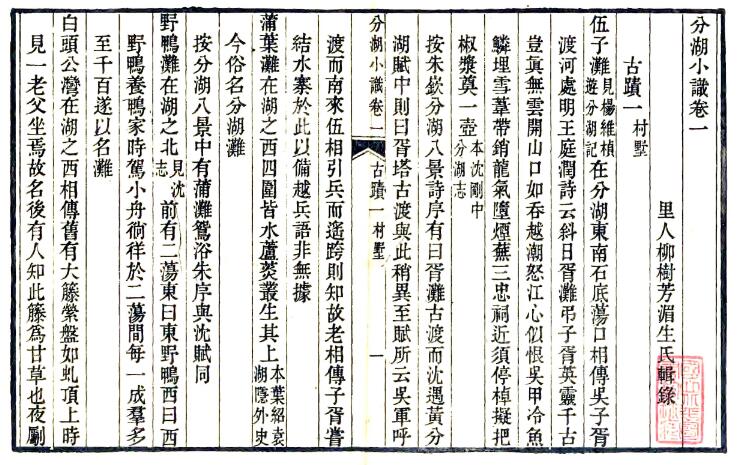 分湖小識卷一
里人柳樹芳湄生氏輯錄
古蹟一村墅
伍子灘見楊維楨遊分湖記在分湖東南石底蕩口相傳吳子胥
渡河處明王庭潤詩云斜日胥灘弔子胥英靈千古
豈眞無雲開山口如吞越潮怒江心似恨吳甲冷魚
鱗埋雪葦帶銷龍氣墮煙蕪三忠祠近須停棹擬把
椒漿奠一壺本沈剛中分湖志
按朱嶔分湖八景詩序有曰胥灘古渡而沈遇黃分
湖賦中則曰胥塔古渡與此稍異至賦所云吳軍呼
分湖小識卷一 古蹟一 村墅 一
渡而南來伍相引兵而遥跨則知故老相傳子胥嘗
結水寨於此以備越兵語非無據
蒲葉灘在湖之西四圍皆水蘆葵叢生其上本葉紹袁湖隱外史
今俗名分湖灘
按分湖八景中有蒲灘鴛浴朱序與沈賦同
野鴨灘在湖之北見沈志前有二蕩東曰東野鴨西曰西
野鴨養鴨家時駕小舟徜徉於二蕩間每一成羣多
至千百遂以名灘
白頭公灣在湖之西相傳舊有大籐縈盤如虬頂上時
見一老父坐焉故名後有人知此籐爲甘草也夜劚